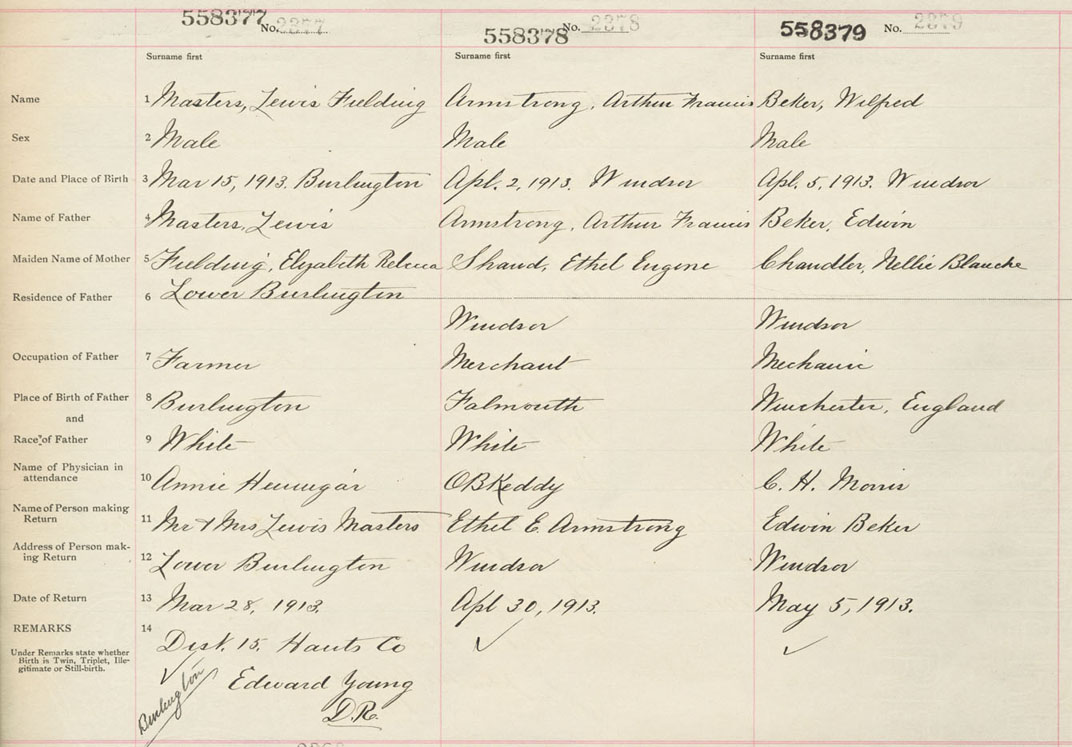 558377 No. 2377 558378 No. 2378 558379 No. 2379
Surname first Surname first Surname first
Name 1 Masters, Lewis Fielding Armstrong, Arthur Francis Beker, Wilfred
Sex 2 Male Male Male
Date and Place of Birth 3 Mar 15, 1913. Burlington Apl. 2, 1913. Windsor Apl. 5, 1913. Windsor
Name of Father 4 Masters, Lewis Armstrong, Arthur Francis Beker, Edwin
Maiden Name of Mother 5 Fielding, Elizabeth Rebecca Shand, Ethel Eugene Chandler, Nellie Blanche
Residence of Father 6 Lower Burlington
Windsor Windsor
Occupation of Father 7 Farmer Merchant Mechanic
Place of Birth of Father 8 Burlington Falmouth Winchester, England
and
Race of Father 9 White White White
Name of Physician in
attendance 10 Annie OBKeddy C. H. Morris
Name of Person making
Return 11 Mr & Mrs Lewis Masters Ethel E. Armstrong Edwin Beker
Address of Person mak-
ing Return 12 Lower Burlington Windsor Windsor
Date of Return 13 Mar 28, 1913. Apl 30, 1913. May 5, 1913.
REMARKS 14
Dist. 15. Hants Co
Under Remarks state whether
Birth is Twin, Triplet, Ille-
gitimate or Still-birth.
Edward Young
D.R.
Burlington